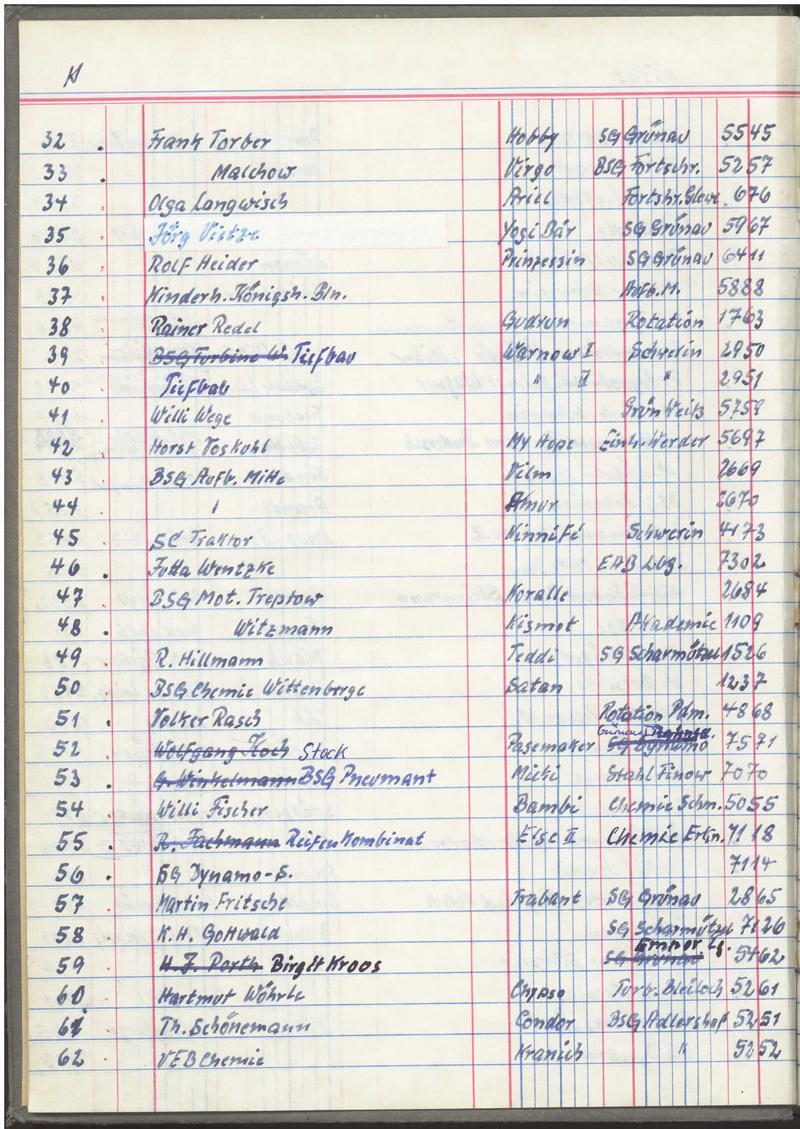 K
32 . Frank Torber Hobby SG Grünau 5545
33 . Malchow Virgo BSG Fortschr. 5257
34 Olga Langwisch Ariel Fortshr. 676
35 Jörg Vietze Yogi Bär SG Grünau 5967
36 Rolf Heider Prinzessin SG Grünau 6411
37 Kinderh. Königsh. Bln. Aufb. M. 5888
38 Rainer Redel Gudrun Rotation 1763
39 BSG Turbine W. Tiefbau Warnow I Schwerin 2950
40 Tiefbau " II " 2951
41 Willi Wege Grün Weiß 5759
42 Horst Voskuhl My Hope Einh. Werder 5697
43 BSG Aufb. Mitte Vilm 2669
44 Amur 2670
45 SC Traktor Ninnifé Schwerin 4173
46 . Jutta Wentzke EAB Lbg. 7302
47 BSG Mot. Treptow Koralle 2684
48 . Witzmann Kismet Akademie 1109
49 R. Hillmann Teddi SG Scharmützel 1526
50 BSG Chemie Wittenberge Satan 1237
51 . Volker Rasch Rotation Pdm. 4868
52 Wolfgang Koch Stock Pasemaker SG Dynamo 7571
53 . G. Winkelmann BSG Pneumant Micki Stahl Finow 7070
54 Willi Fischer Bambi Chemie Schm. 5055
55 . R. Fachmann Reifenkombinat Else II Chemie Erkn. 7118
56 . SG Dynamo-S. 7114
57 Martin Fritsche Trabant SG Grünau 2865
58 K.H. Gottwald SG Scharmützel 7126
59 H.J. Porth Birgit Kroos SG Grünau Empor 5462
60 Hartmut Wöhrle Turb. Bleiloch 5261
61 Th. Schönemann Condor BSG Adlershof 5251
62 VEB Chemie Kranich " 5252